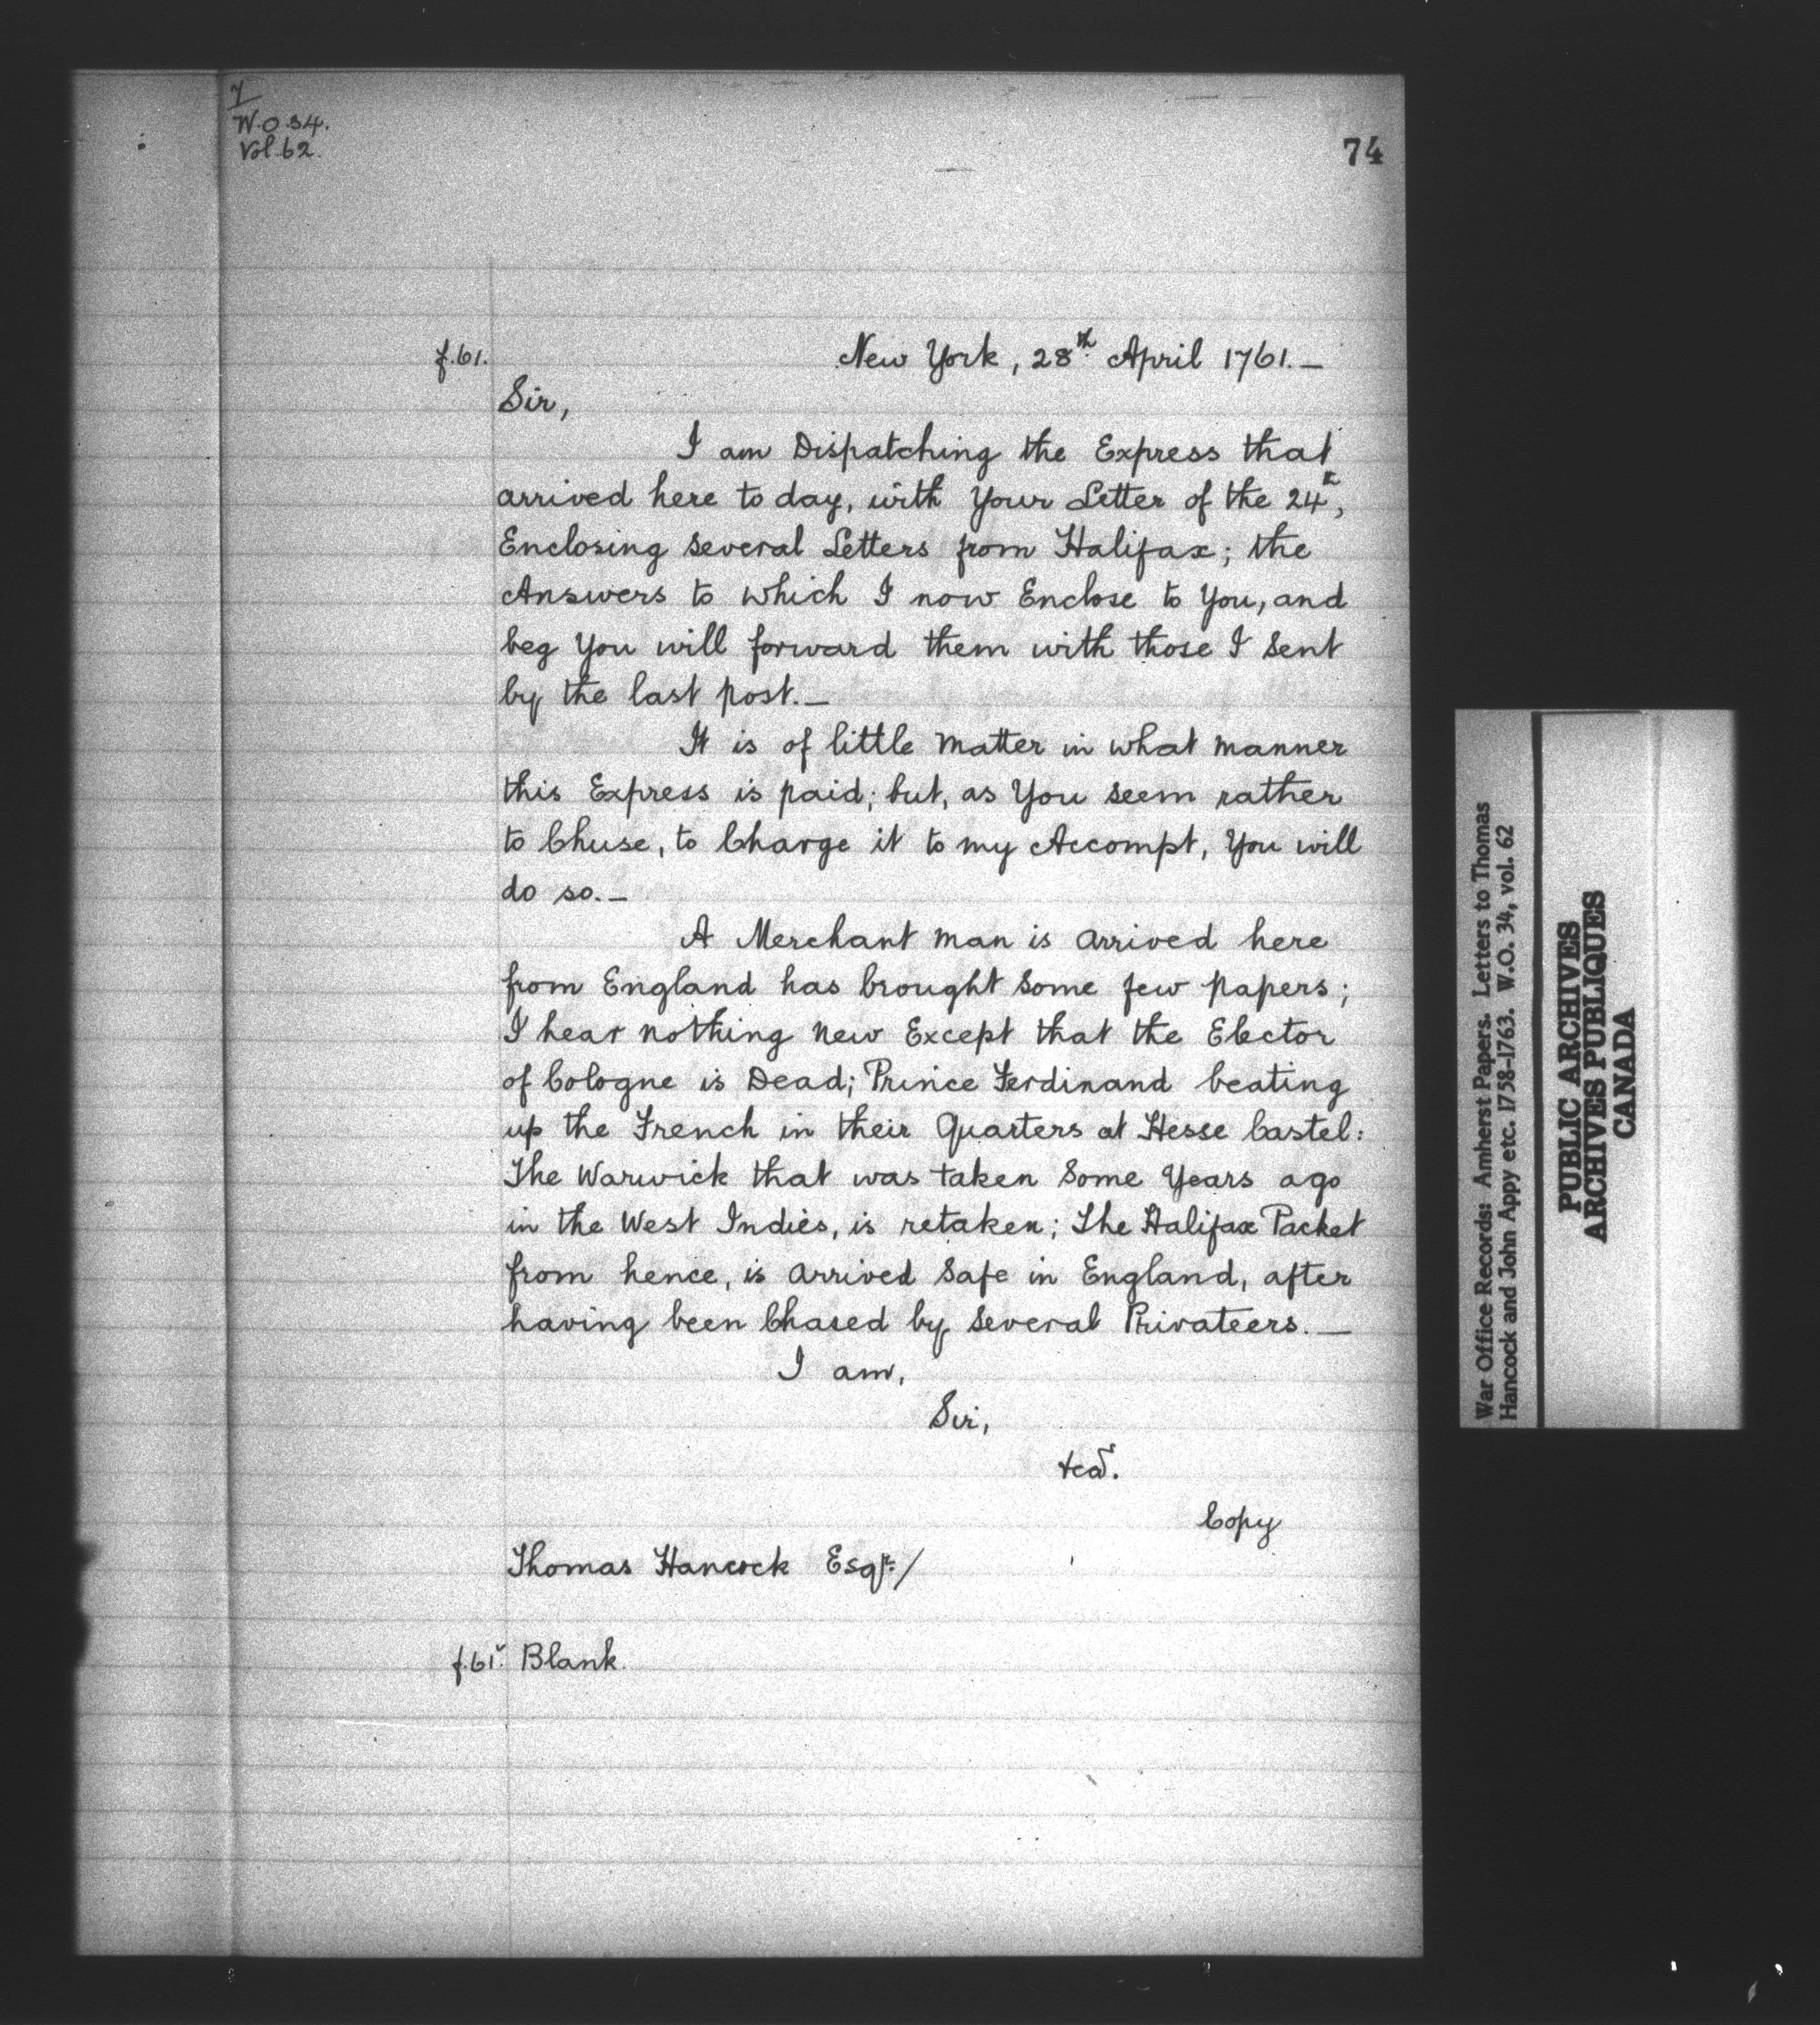 7
W.O 34.
Vol. 62.
74
f.61.
New York, 28th April 1761.—
Sir,
I am Dispatching the Express that
arrived here to day, with Your Letter of the 24th,
Enclosing Several Letters from Halifax; the
Answers to which I now Enclose to You, and
beg You will forward them with those I Sent
by the last post.—
It is of little Matter in what manner
this Express is paid; but, as You seem rather
to Chuse, to Charge it to my Accompt, You will
do so.—
A Merchant man is arrived here
from England has brought Some few papers;
I hear nothing New Except that the Elector
of Cologne is Dead; Prince Ferdinand beating
up the French in their Quarters at Hesse Castel:
The Warwick that was taken Some Years ago
in the West Indies, is retaken; The Halifax Packet
from hence, is arrived Safe in England, after
having been Chased by Several Privateers.—
I am,
Sir,
&ca.
Copy
Thomas Hancock Esqr./
f.61v. Blank.
War Office Records: Amherst Papers. Letters to Thomas
Hancock and John Appy etc. 1758-1763. W.O. 34, vol. 62
PUBLIC ARCHIVES
ARCHIVES PUBLIQUES
CANADA